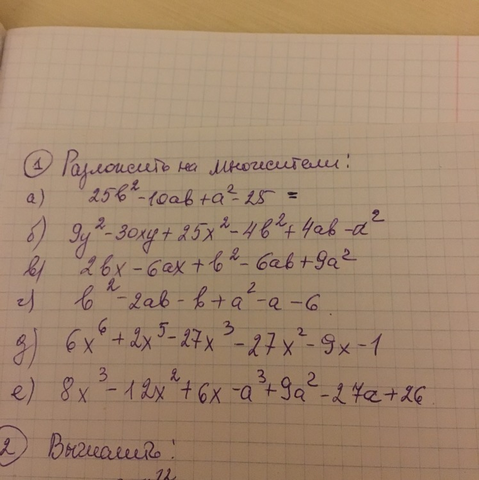 ① Разложить на множители:
а) 25b² - 10ab + a² - 25 =
б) 9y² - 30xy + 25x² - 4b² + 4ab - a²
в) 2bx - 6ax + b² - 6ab + 9a²
г) b² - 2ab - b + a² - a - 6
д) 6x⁶ + 2x⁵ - 27x³ - 27x² - 9x - 1
е) 8x³ - 12x² + 6x - a³ + 9a² - 27a + 26
② Вычислить:
12